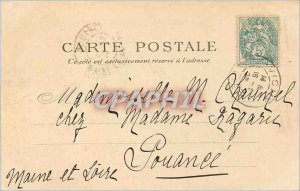 CARTE POSTALE
Ce côté est exclusivement réservé à l'adresse
Mademoiselle M. Chauvel
chez Madame Ragaru
Pouancé
Maine et Loire